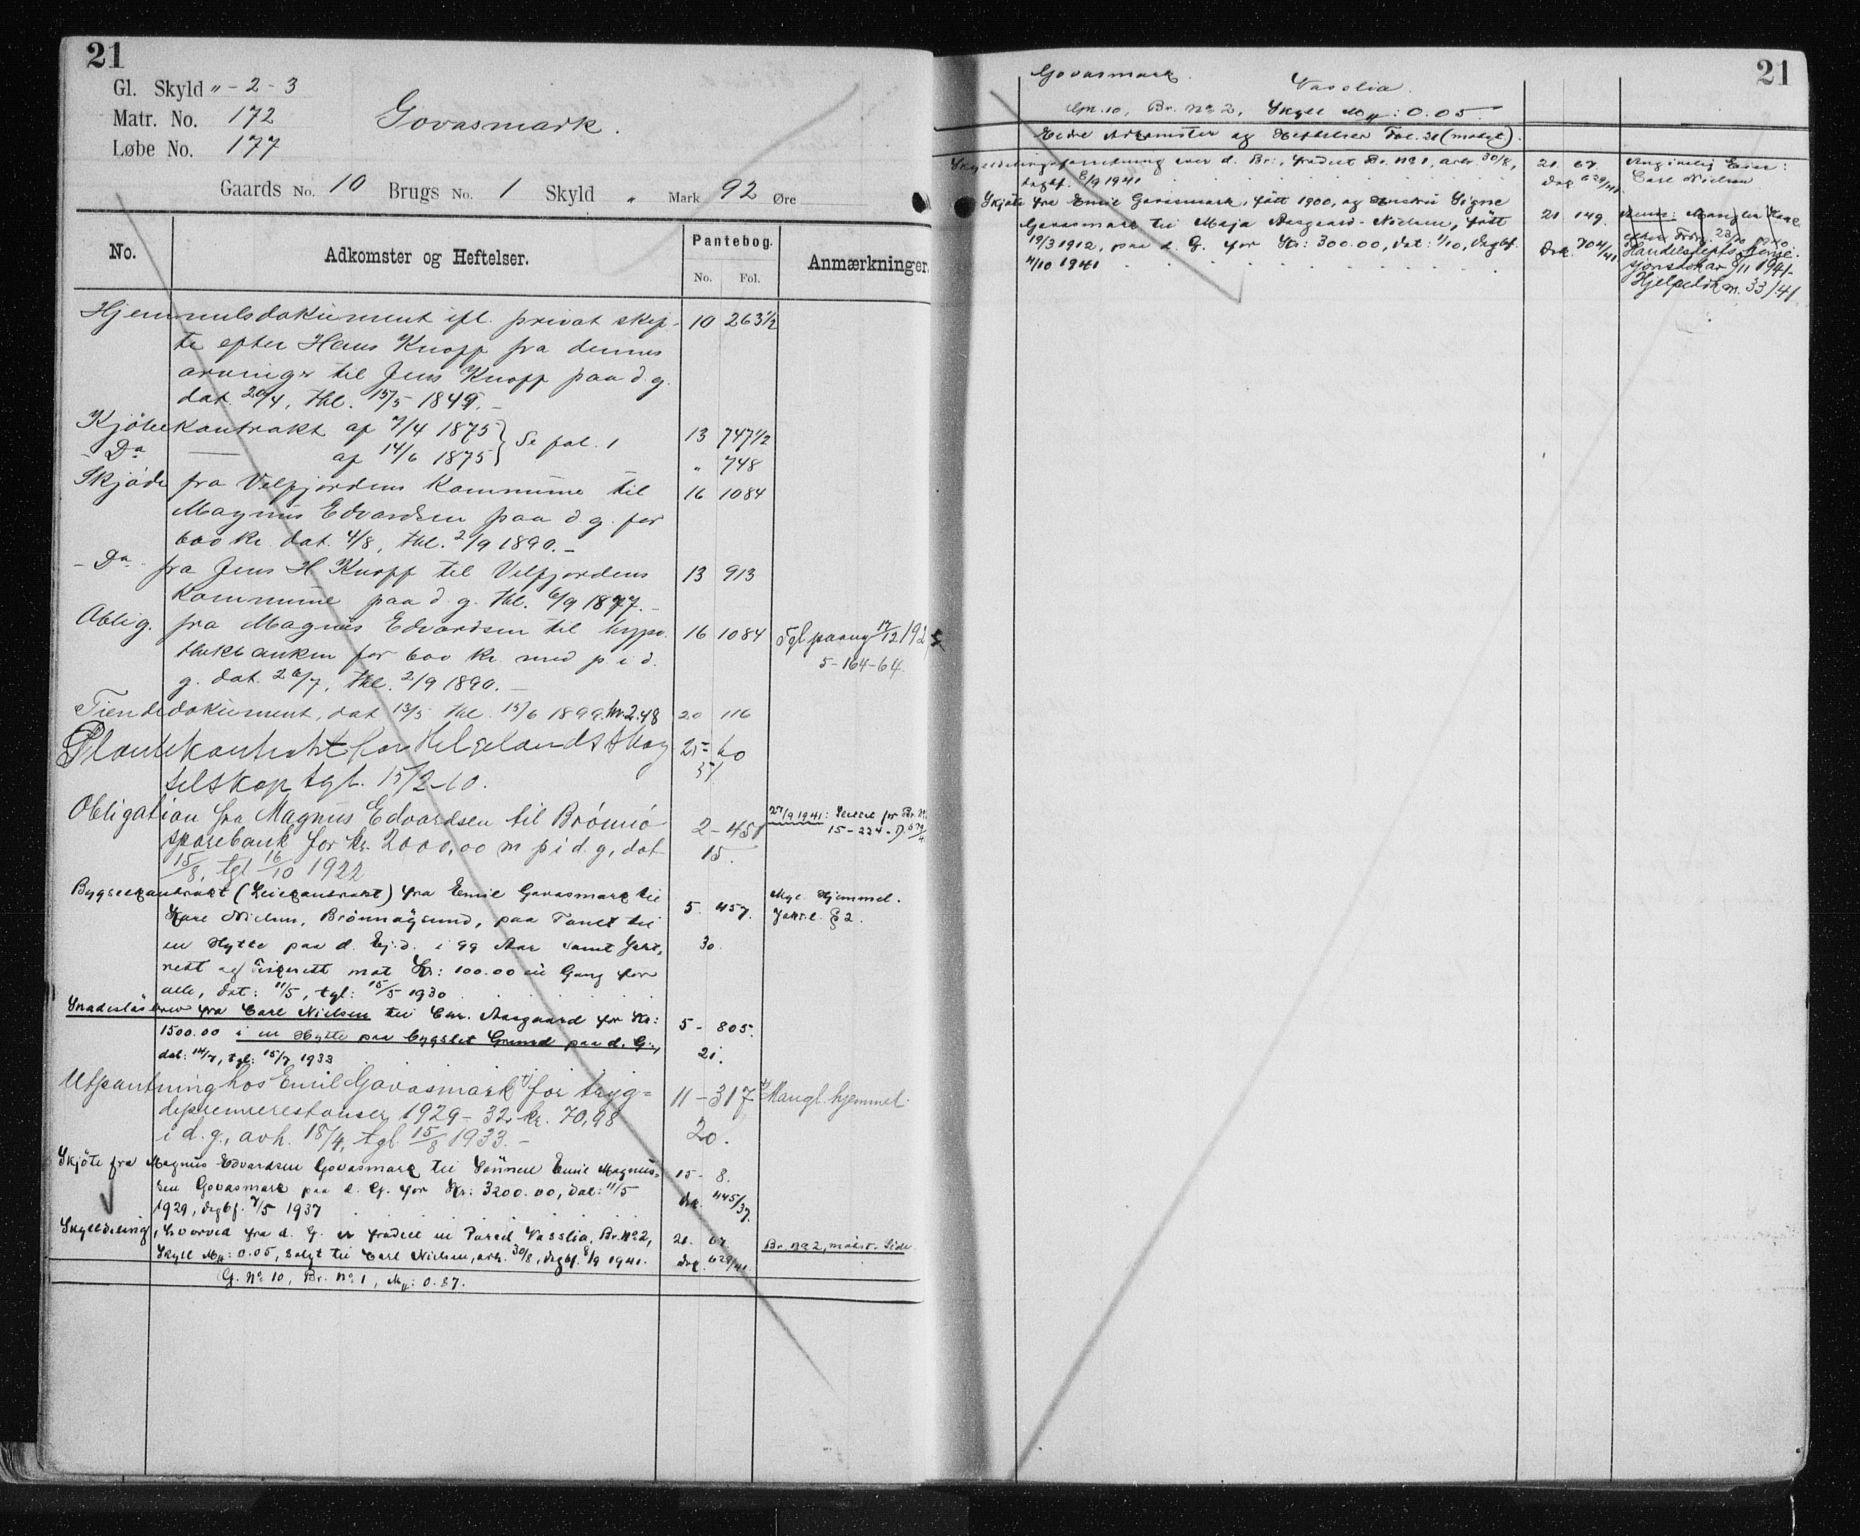 21
Gl. Skyld „ - 2 - 3
Matr. No. 172
Løbe No. 177
Govasmark.
Gaards No. 10 Brugs No. 1 Skyld „ Mark 92 Øre
No. Adkomster og Heftelser. Pantebog. No. Fol. Anmærkninger.
Hjemmelsdokument ifl. privat skif- 10 263½
te efter Hans Knoff fra dennes
arvinger til Jens Knoff paa d. g.
dat. 20/4, thl. 15/5 1849. -
Kjøbekontrakt af 7/4 1875 } Se fol. 1 13 747½
- Do — af 14/6 1875 } „ 748
Skjøde fra Velfjordens Kommune til 16 1084
Magnus Edvardsen paa d g. for
600 kr. dat. 4/8, thl. 2/9 1890. -
- Do - fra Jens H Knoff til Velfjordens 13 913
Kommune paa d. g. thl. 6/9 1877. -
Oblig. fra Magnus Edvardsen til hypo- 16 1084 Tgl paany 17/12 192
thekbanken for 600 kr. med p i d. 5-164-64.
g. dat. 26/7, thl. 2/9 1890. -
Tiendedokument, dat 13/5 thl. 15/6 1899. kr. 2.48 20 116
Plantekontrakt for Helgelands Skog 25- 60
selskap tgl. 15/2-10. 51
Obligation fra Magnus Edvardsen til Brønnø 2 - 451 27/9 1941: for Br. №
sparebank for kr. 2000,00 m p i d. g, dat 15. 15-224-
15/8, tgl 16/10 1922
Bygselkontrakt (Leiekontrakt) fra Emil Govasmark til 5. 457. Mgl. Hjemmel.
Kare Nielsen, Brønnøysund, paa Tomt til Jaktl. § 2.
en Hytte paa d. Ejd. i 99 Aar samt Jakt- 30.
rett og Fiskerett mot Kr: 100.00 en Gang for
alle, dat: 11/5, tgl: 15/5 1930 . . . .
Skadesløsbrev fra Carl Nielsen til Chr. Aasgaard for Kr: 5 - 805.
1500.00 i en Hytte paa bygslet Grund paa d. G., 21.
dat: 14/7, tgl: 15/7 1933 . . . .
Utpantning hos Emil Govasmark for tryg= 11 - 317 Mangl. hjemmel.
depremierestanser 1929-32 kr. 70,98 20.
i d. g., avh. 18/4, tgl. 15/8 1933. -
Skjøte fra Magnus Edvardsen Govasmark til Sønnen Emil Magnus= 15 - 8.
sen Govasmark paa d. G. for Kr: 3200.00, dat: 11/5 Dok. 445/37.
1929, dagbf. 7/5 1937 . . . .
Skylldeling, hvorved fra d. G. er fradelt en Parsell Vasslia, Br. №2, 21. 67. Br. №2, motst. Side
Skyll M„: 0.05, solgt til Carl Nielsen, avh. 30/8, dagbf. 8/9 1941. Dok. 629/41
G. № 10, Br. № 1, M„: 0.87.
21
Govasmark. Vasslia.
Gn. 10, Br. № 2, Skyll M„: 0.05.
Eldre Adkomster og Heftelser Fol. 21 (motst).
Skylldelingsforretning over d. Br., fradelt Br. № 1, avh. 30/8, 21. 67. Angivelig Eier:
dagbf. 8/9 1941 . . . . Dok. 629/41. Carl Nielsen
Skjøte fra Emil Govasmark, født 1900, og Hustru Signe 21. 149.
Govasmark til Maja Aasgaard-Nielsen, født
19/3 1912, paa d. G. for Kr: 300.00, dat: 1/10, dagbf. Dok. 704/41 Handelsdepts. konse-
4/10 1941 . . . . sjonsdok av 9/11 1941.
Hjelpedok nr. 33/41